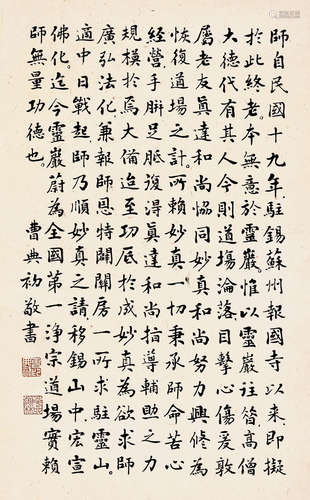 師自民國十九年駐錫蘇州報國寺以來即擬
於此終老本無意於靈巖惟以靈巖往昔高僧
大德代有其人今則道場淪落目擊心傷爰敦
屬老友真達和尚協同妙真和尚努力興修為
恢復道場之計所賴妙真一切秉承師命苦心
經營手胼足胝復得真達和尚指導輔助之力
規模於焉大備迨至功厎於成妙真為欲求師
廣弘法化兼報師恩特闢關房一所求駐靈山
適中日戰起師乃順妙真之請移錫山中宏宣
佛化迄今靈巖蔚為全國第一淨宗道場實賴
師無量功德也
曹典初敬書